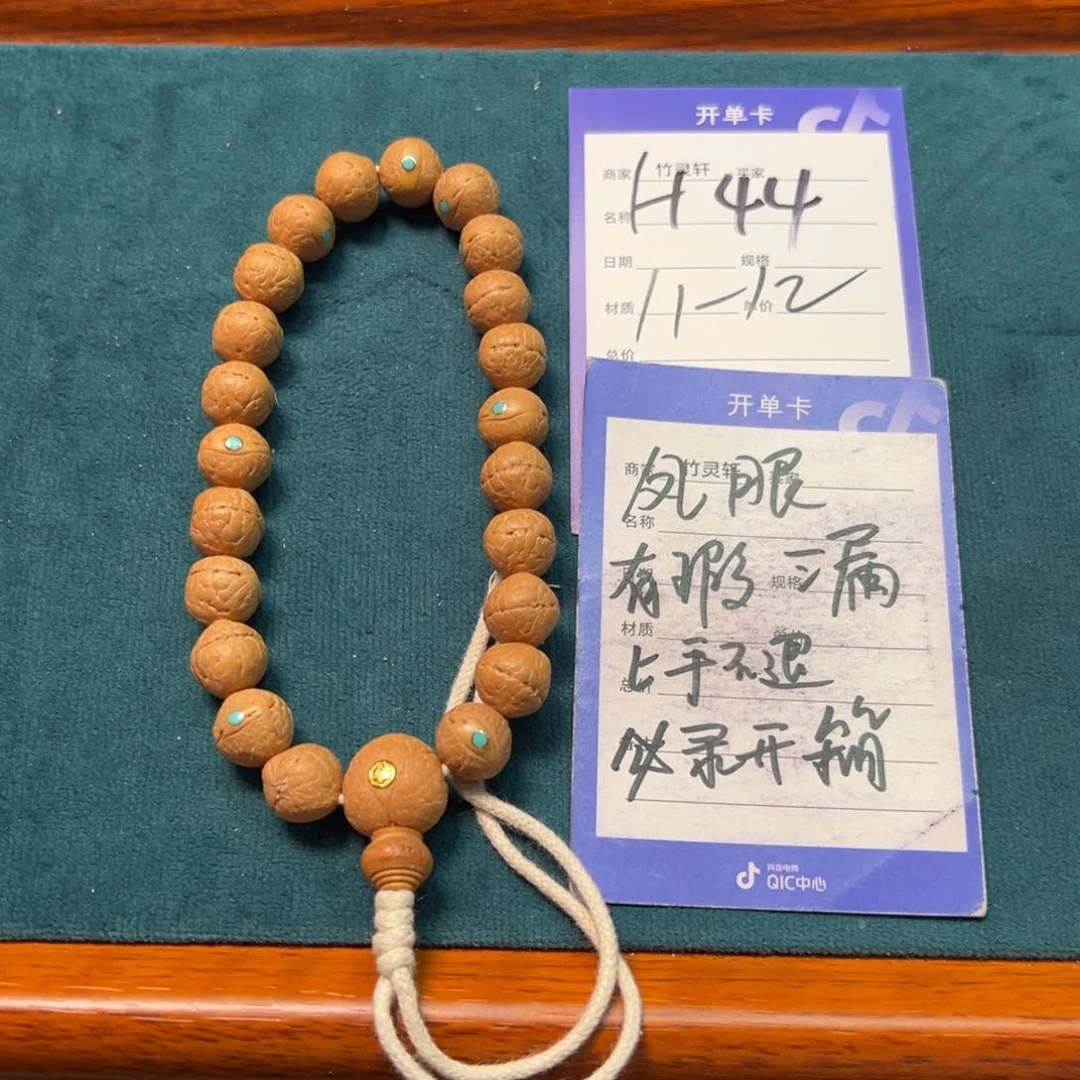 开单卡
商家 竹灵轩 买家
H44
名称
日期 规格
11-12
材质 单价
总价
开单卡
商家 竹灵轩 买家
凤眼
名称
有瑕三漏
规格
材质
上手不退
总价
必录开箱
抖音电商
QIC中心